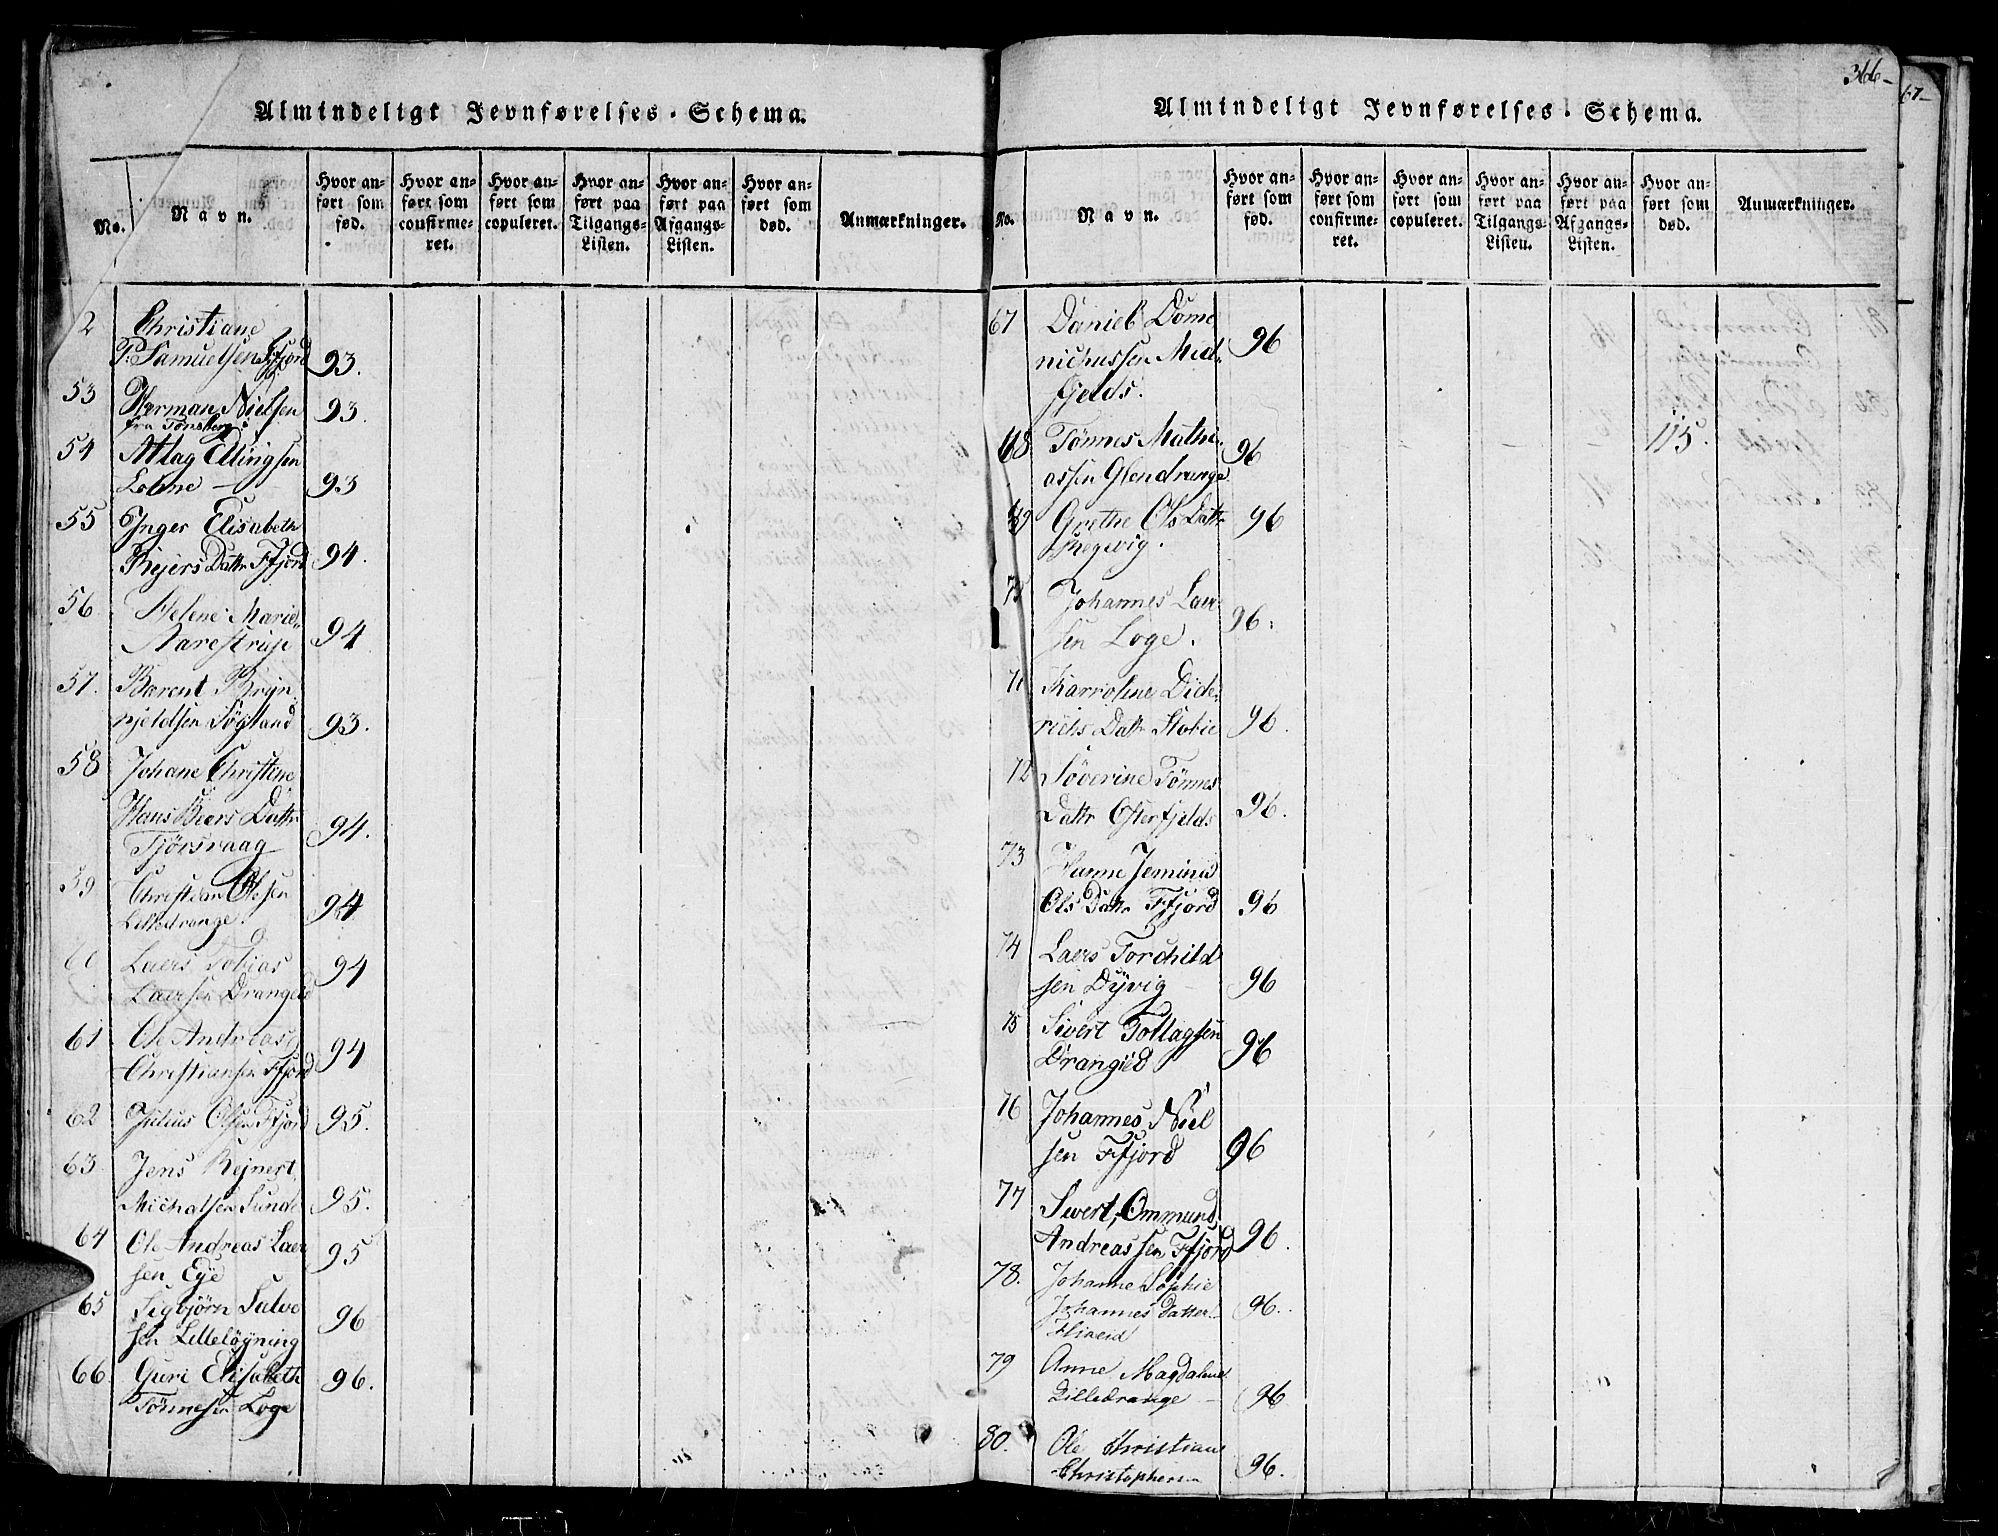 Almindeligt Jevnførelses-Schema.
No.
Navn.
Hvor anført som fød.
Hvor anført som confirmeret.
Hvor anført som copuleret.
Hvor anført paa Tilgangs-Listen.
Hvor anført paa Afgangs-Listen.
Hvor anført som død.
Anmærkninger.
2 Christiane
P. Samuelsen Ffjord 93.
53 Herman Nielsen 93.
fra Tønsberg
54 Atlag Ellingsen
Lohne — 93
55 Inger Elisabeth
Rejers Dattr Ffjord 94.
56 Helene Marie
Aarestrup 94
57. Barent Bryn
hjeldsen Søgland 93.
58 Johane Christine
Hans Beers Dattr 94.
Tjørsvaag
59 Christian Olsen
Lilledrange. 94
60 Laers Tobias 94
Laersen Drangeid
61 Ole Andreas
Christiansen Ffjord 94
62 Julius Olsen Ffjord 95.
63 Jens Rejnert
Michalsen Sunde 95.
64 Ole Andreas Laer
sen Eye 95
65 Sigbjørn Salve
sen Lilleløgning 96
66. Guri Elisabeth 96.
Tønnesen Loge
366-
67-
Almindeligt Jevnførelses-Schema.
No.
Navn.
Hvor anført som fød.
Hvor anført som confirmeret.
Hvor anført som copuleret.
Hvor anført paa Tilgangs-Listen.
Hvor anført paa Afgangs-Listen.
Hvor anført som død.
Anmærkninger.
67 Daniel Dome
nichussen Mid- 96
fjelds.
68 Tönnes Mathi- 115.
assen Glendrange 96
69 Grethe Ols Dattr 96
Regevig.
70 Johannes Laer
sen Loge. 96.
71 Karroline Dide-
richs Dattr Stolie 96.
72 Søverine Tønnes
Dattr Osterfjelds 96.
73 Hanne Jemina
Ols Dattr Ffjord 96
74 Laers Torchild
sen Dÿvig — 96
75 Sivert Tollagsen
Drangied 96
76 Johannes Niel
sen Ffjord 96
77 Sivert, Ommund,
Andreassen Ffjord 96.
78. Johanne Sophie
Johannes Datter 96.
79 Anne Magdalene
Lilledrange — 96
80. Ole Christian
Christophersen 96.